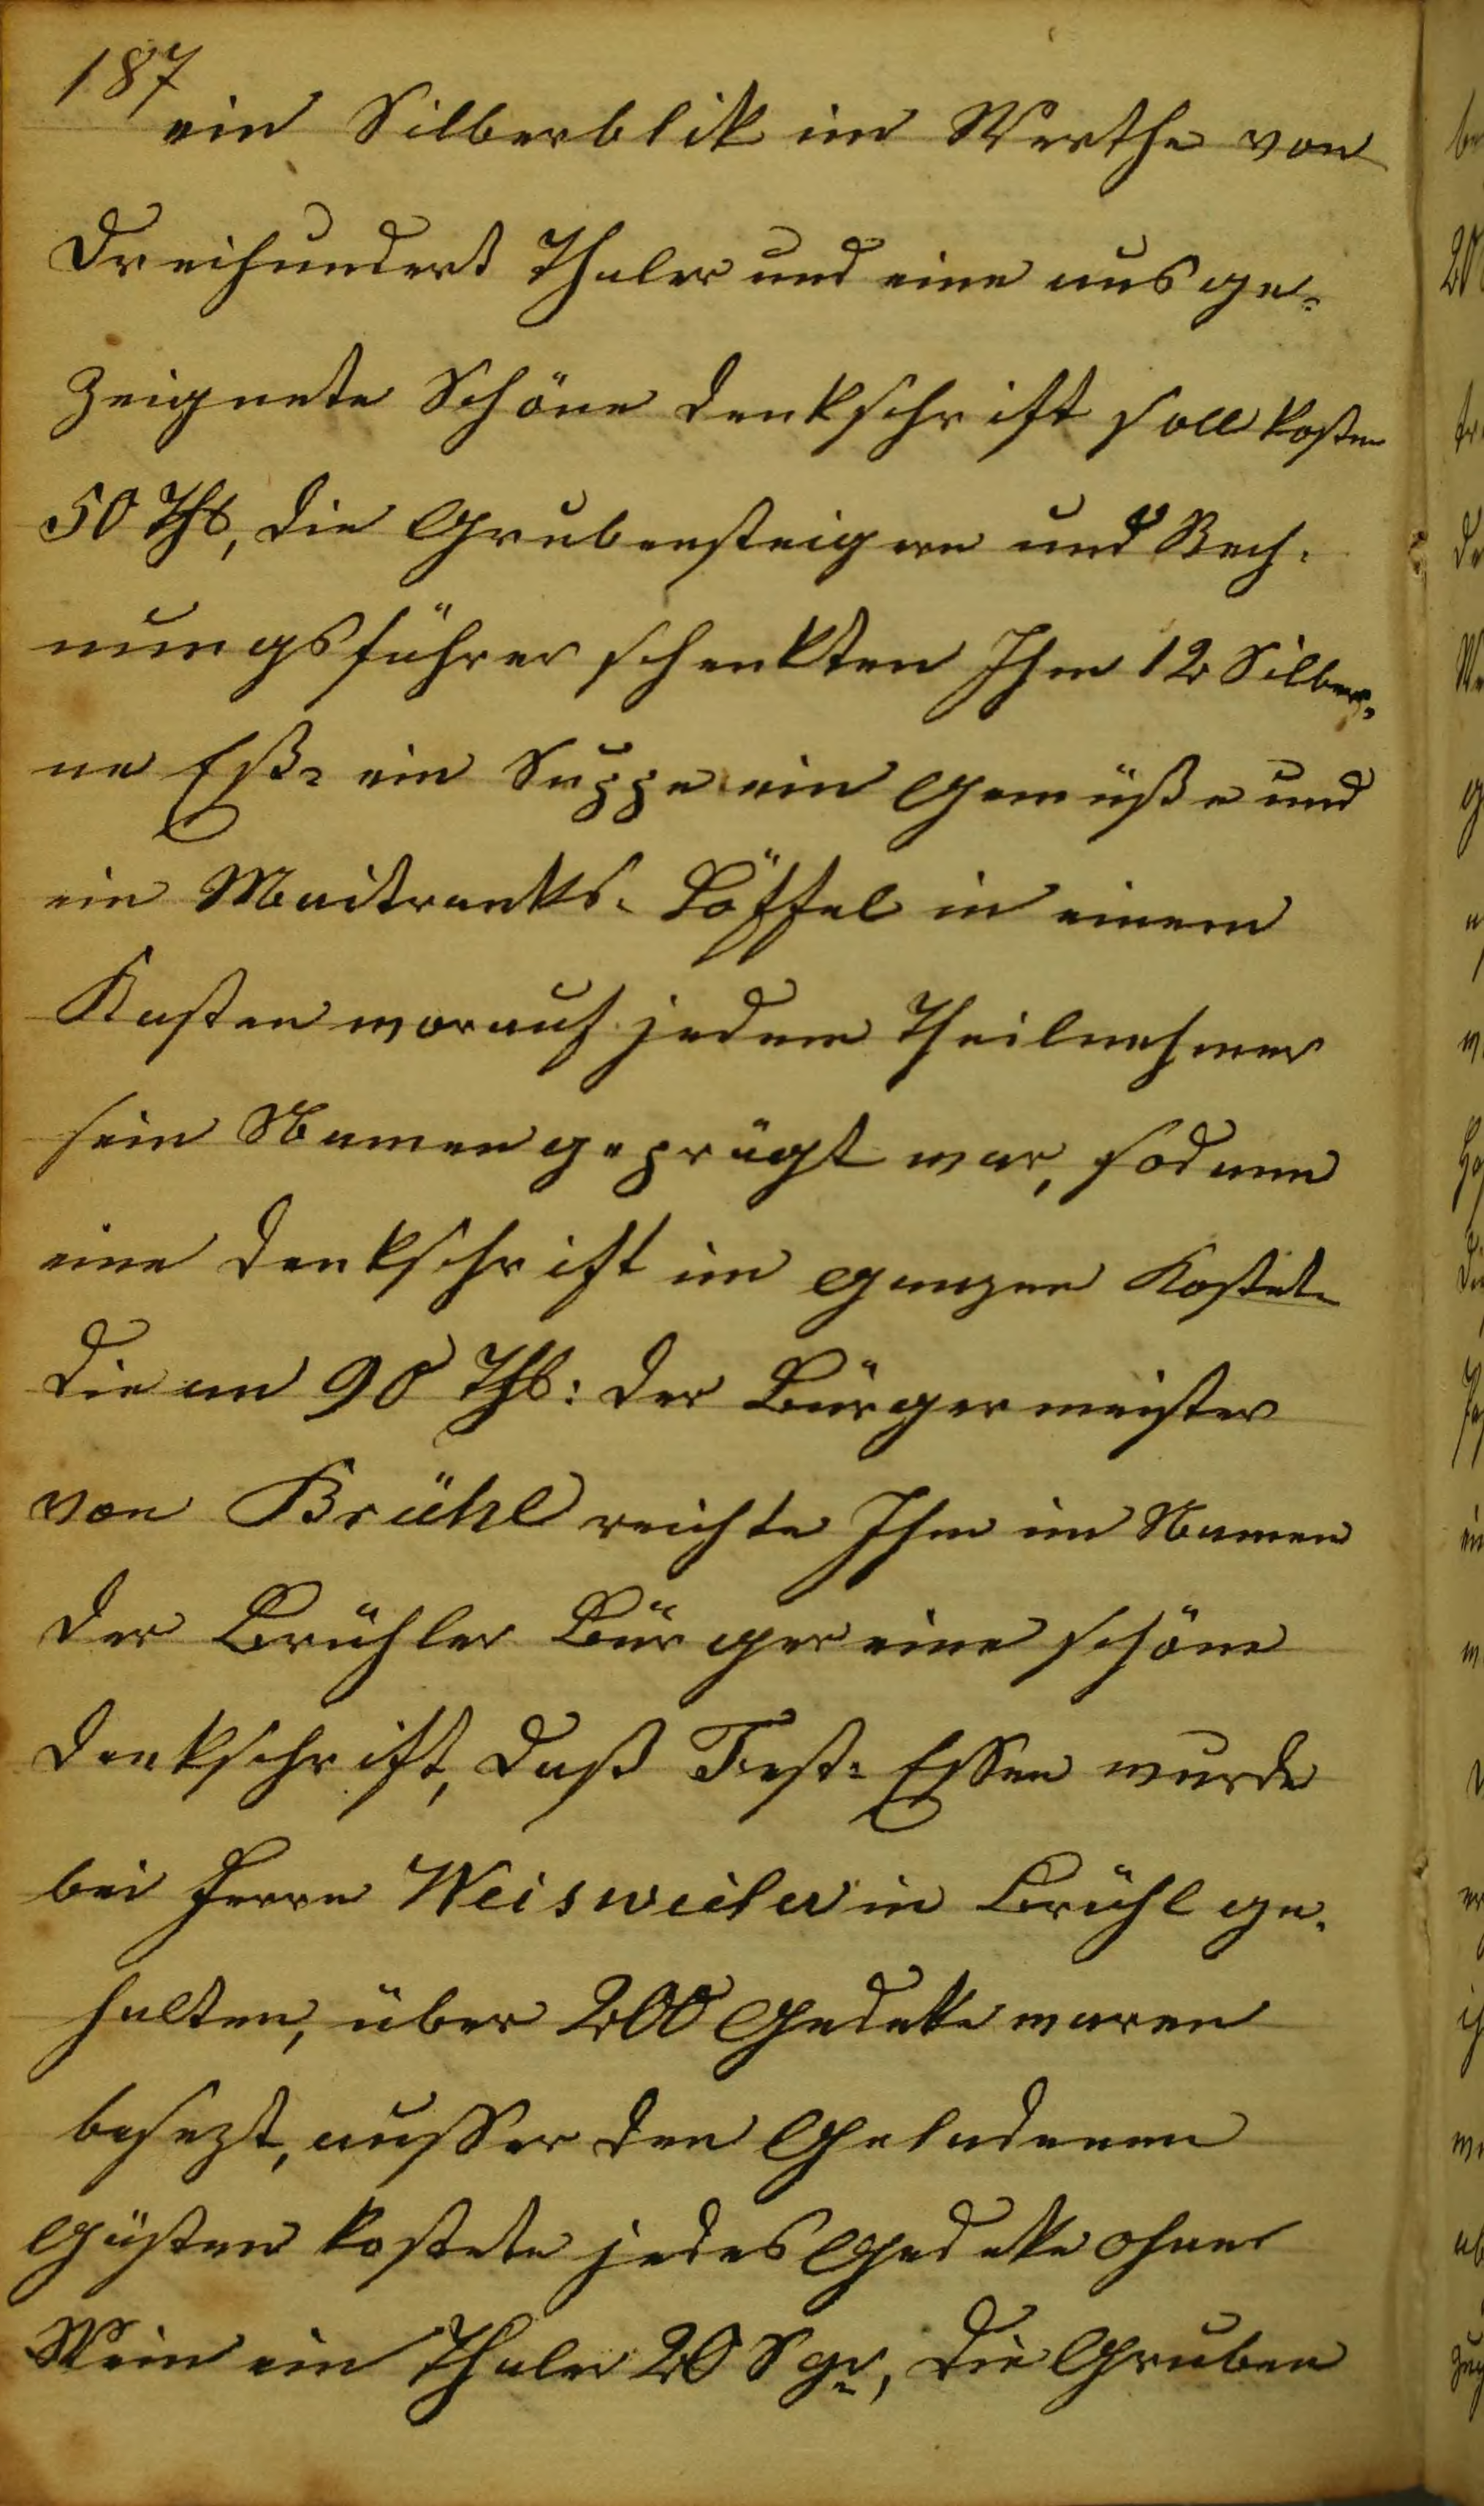 187
ein Silberblik im Werthe von
Dreihundert Thaler und eine ausge-
zeignete Schöne Denkschrift soll kosten
50 Thl, die Grubensteigern und Rech-
nungsführer schenkten Ihm 12 Silber-
ne Eß- ein Suppe ein Gemüße und
ein Maitranks- Löffel in einem
Kasten worauf jedem Theilnehmer
sein Namen geprägt war, sodann
eine Denkschrift im ganzen Kostete
die an 90 Thl: der Bürgermeister
von Brühl reichte Ihm im Namen
der Brühler Bürger eine schöne
Denkschrift, daß Fest-Essen wurde
bei Herrn Weisweiler in Brühl ge-
halten, über 200 Gedekke waren
besezt, ausser den Geladenen
Gästen kostete jedes Gedekke ohne
Wein ein Thaler 20 Sgr, die Gruben